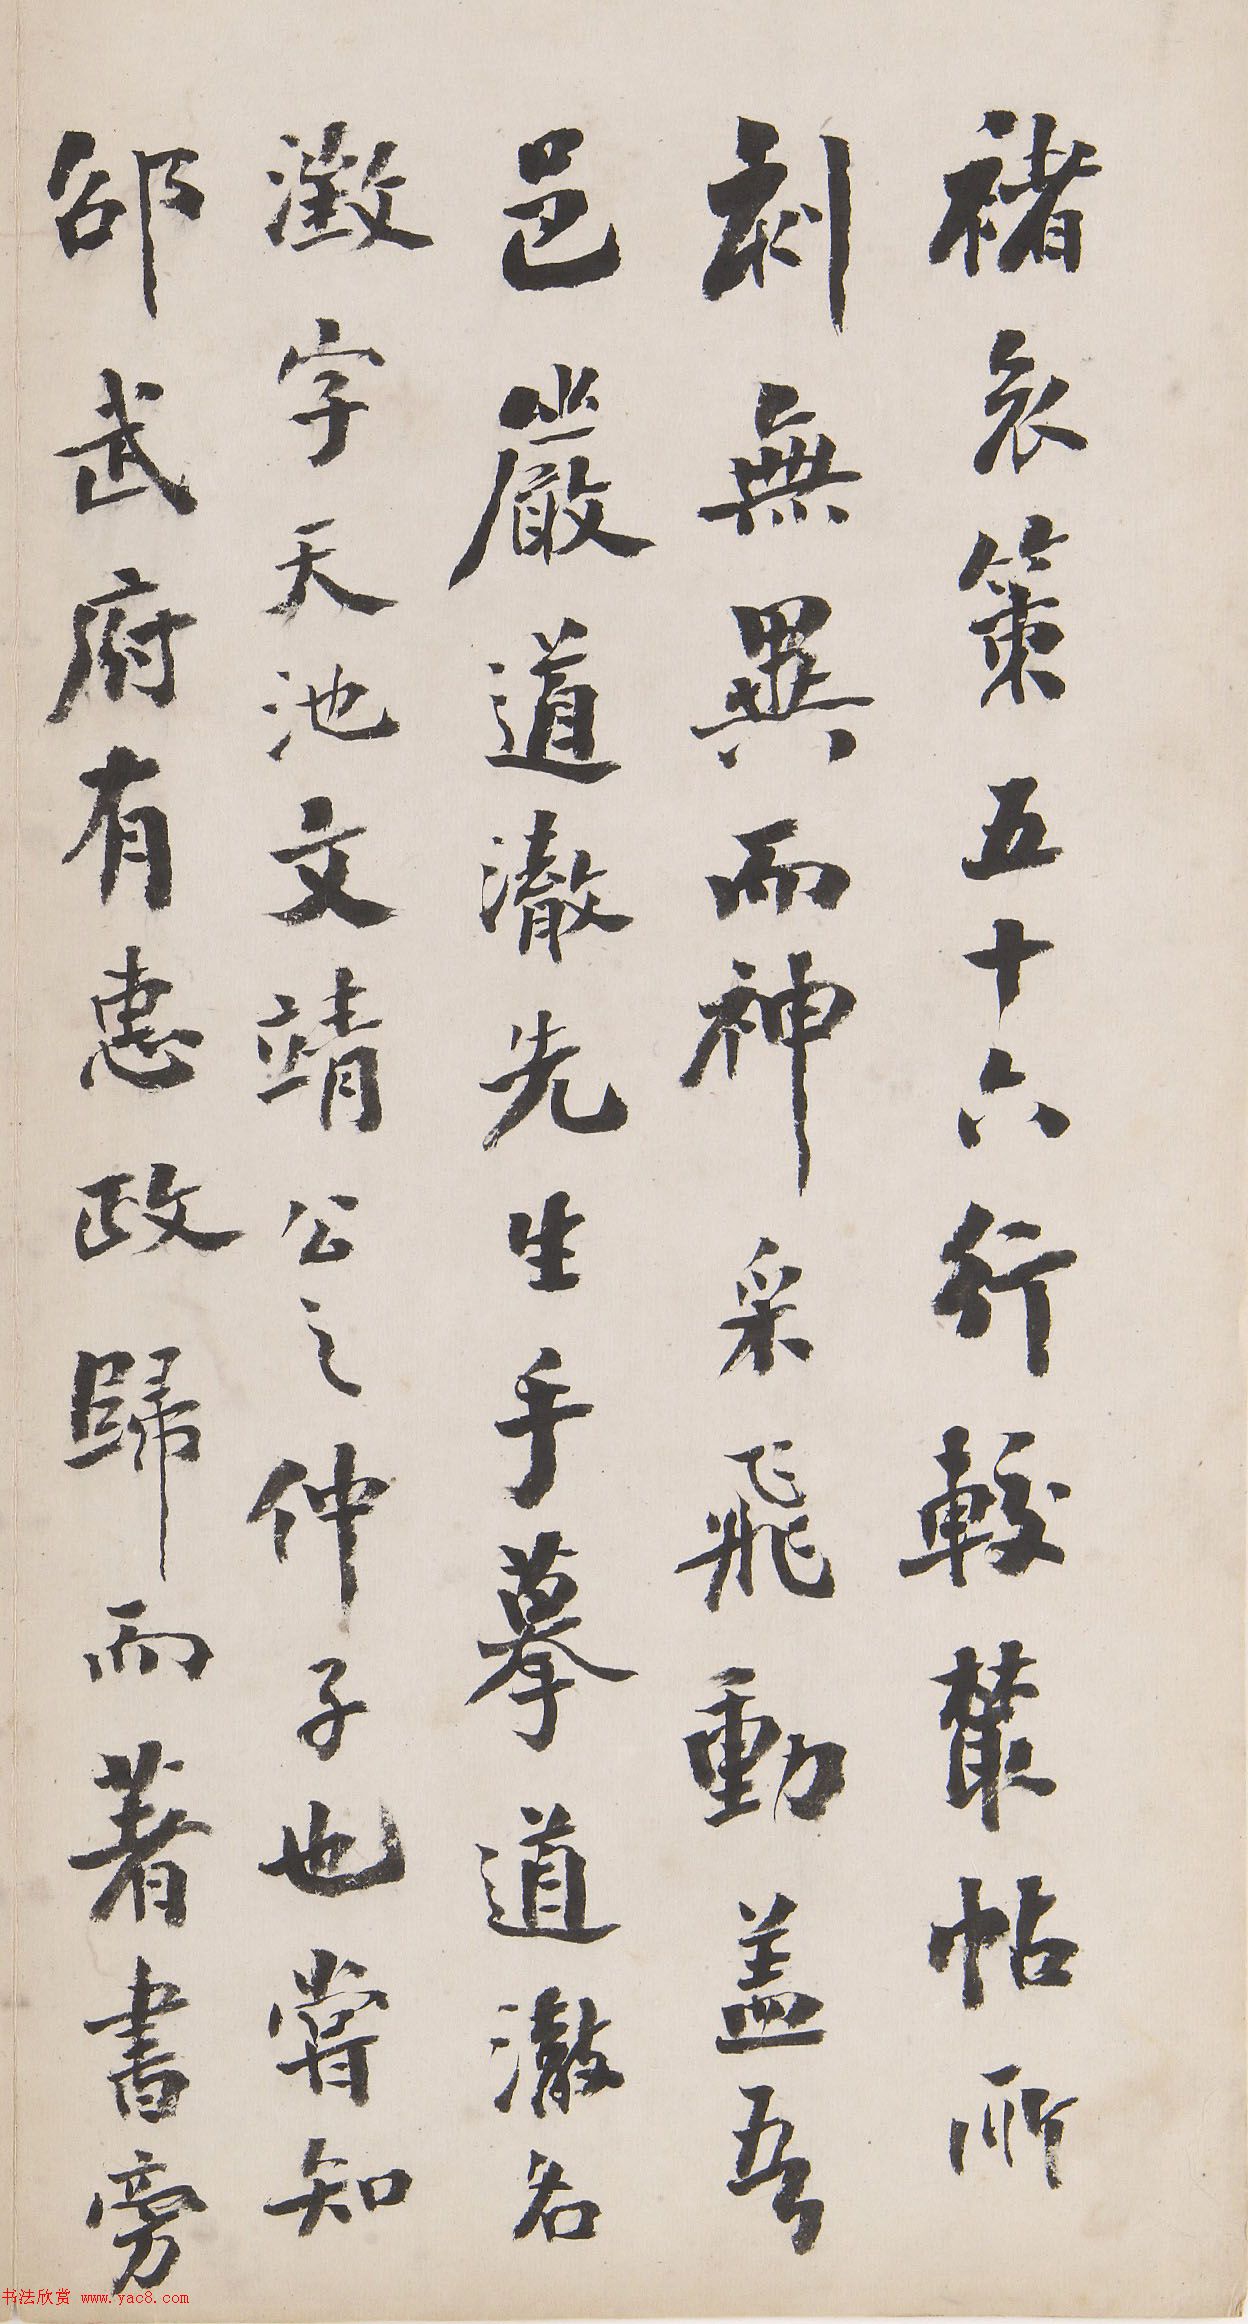 褚哀策五十六行較叢帖所
刻無異而神采飛動盖吾
邑嚴道澈先生手摹道澈名
澂字天池文靖公之仲子也嘗知
邵武府有惠政歸而著書旁
书法欣赏 www.yac8.com